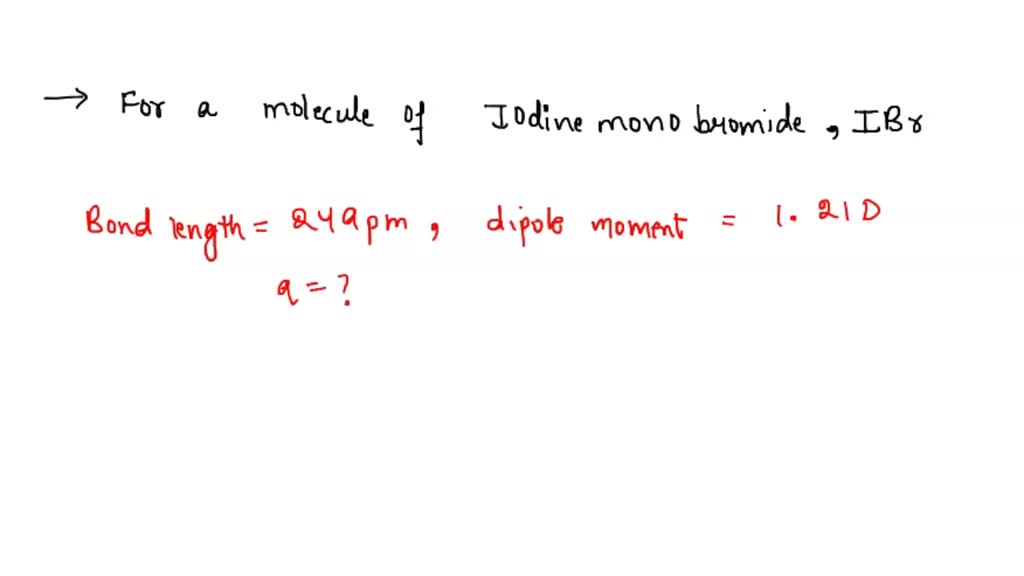 → For a molecule of Iodine mono bromide, IBr
Bond length = 249pm, dipole moment = 1.21D
q = ?